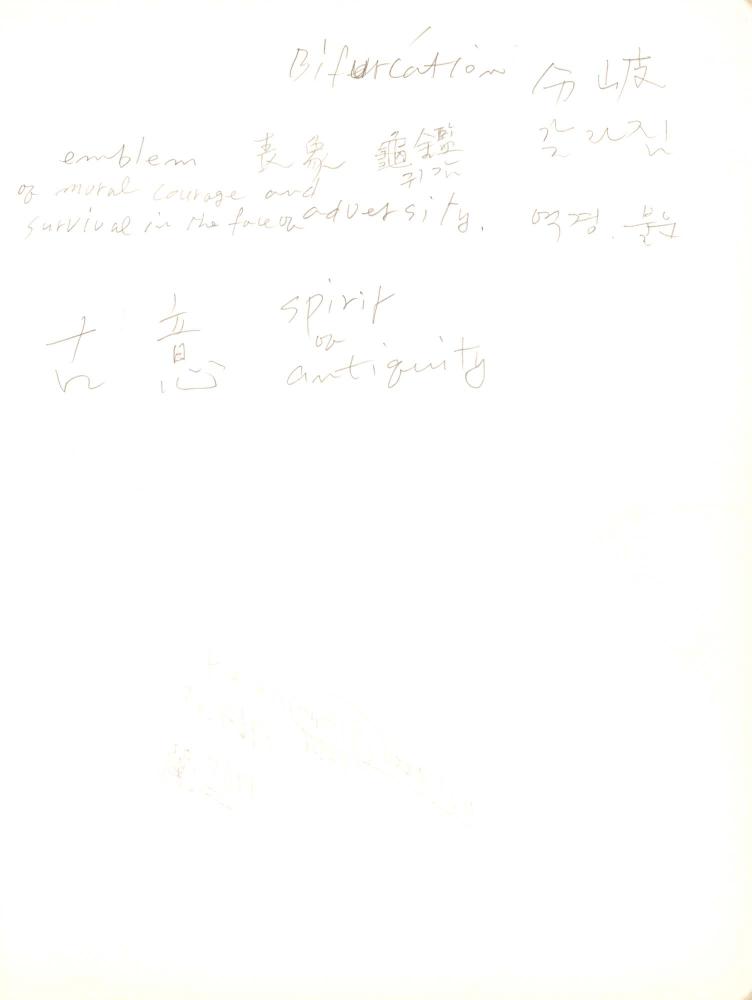 Bifurcation 分岐
갈라짐
emblem 表象 龜鑑
귀감
of moral courage and
survival in the face of adversity. 역경. 불운
古意 spirit
of
antiquity